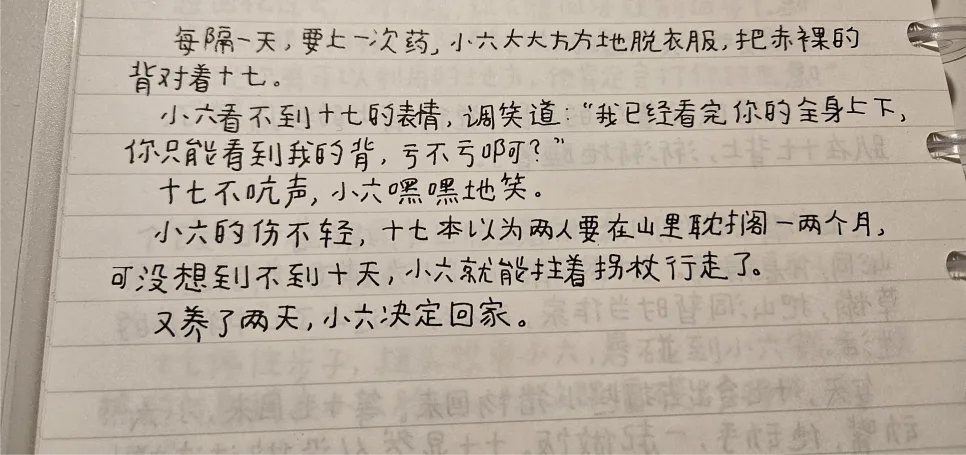 每隔一天，要上一次药，小六大大方方地脱衣服，把赤裸的
背对着十七。
小六看不到十七的表情，调笑道：“我已经看完你的全身上下，
你只能看到我的背，亏不亏啊？”
十七不吭声，小六嘿嘿地笑。
小六的伤不轻，十七本以为两人要在山里耽搁一两个月，
可没想到不到十天，小六就能拄着拐杖行走了。
又养了两天，小六决定回家。